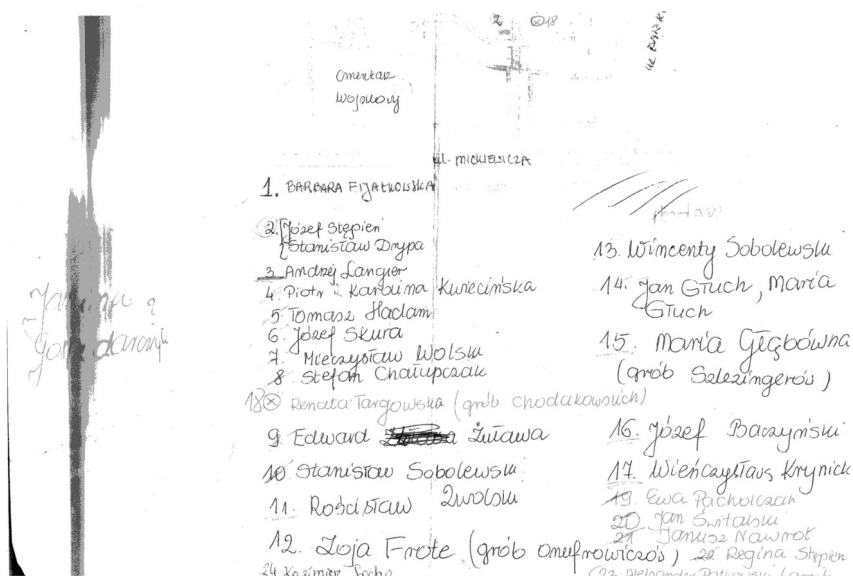 2 ⊗18
Cmentarz
Wojskowy
ul. MICKIEWICZA
1. BARBARA FIJAŁKOWSKA
2. Józef Stępień
Stanisław Drypa
3. Andrzej Langier
4. Piotr i Karolina Kwiecińska
5. Tomasz Hadam
6. Józef Skura
7. Mieczysław Wolski
8. Stefan Chałupczak
18⊗ Renata Targowska (grób Chodakowskich)
9. Edward Żuława
10. Stanisław Sobolewski
11. Rościsław Zwolski
12. Zoja Frote (grób Onufrowiczów)
24 Kazimierz Socha
13. Wincenty Sobolewski
14. Jan Głuch, Maria
Głuch
15. Maria Głębówna
(grób Szlezingerów)
16. Józef Baczyński
17. Wieńczysław Krynick
19 Ewa Pacholczak
20 Jan Świtalski
21 Janusz Nawrot
22 Regina Stępień
(23. Aleksander